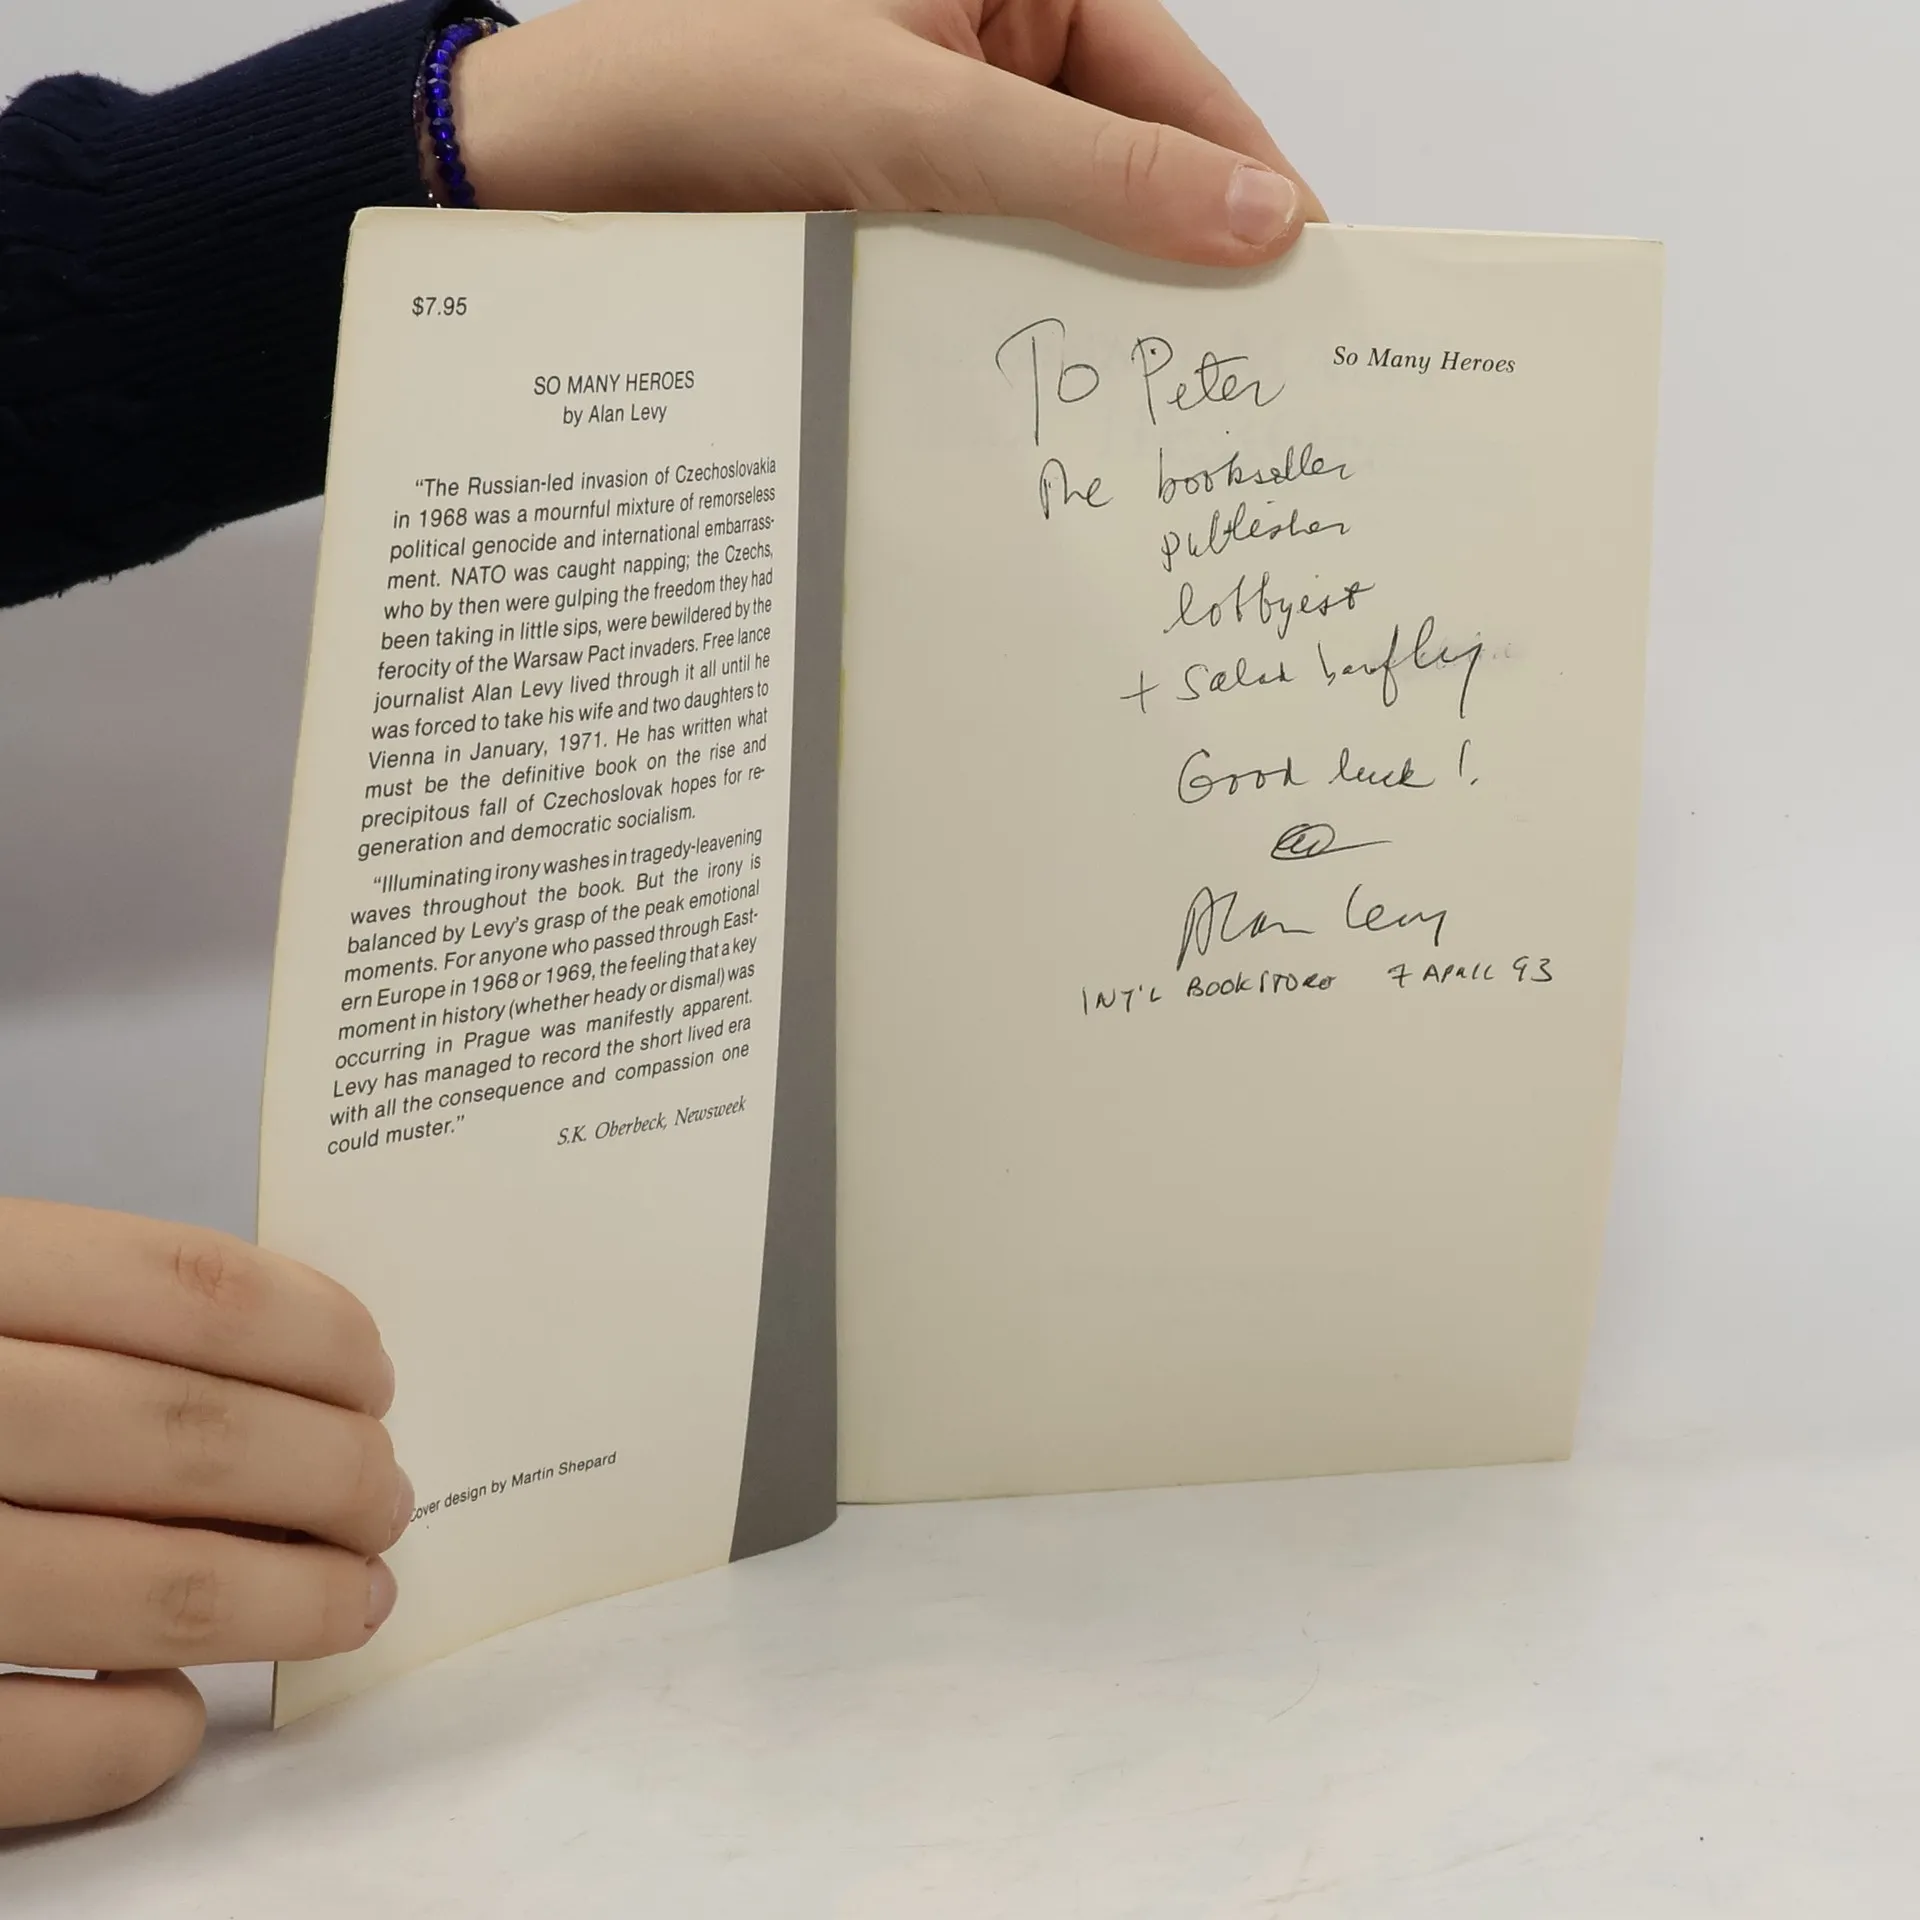 $7.95
SO MANY HEROES
by Alan Levy
“The Russian-led invasion of Czechoslovakia
in 1968 was a mournful mixture of remorseless
political genocide and international embarrass-
ment. NATO was caught napping; the Czechs,
who by then were gulping the freedom they had
been taking in little sips, were bewildered by the
ferocity of the Warsaw Pact invaders. Free lance
journalist Alan Levy lived through it all until he
was forced to take his wife and two daughters to
Vienna in January, 1971. He has written what
must be the definitive book on the rise and
precipitous fall of Czechoslovak hopes for re-
generation and democratic socialism.
“Illuminating irony washes in tragedy-leavening
waves throughout the book. But the irony is
balanced by Levy’s grasp of the peak emotional
moments. For anyone who passed through East-
ern Europe in 1968 or 1969, the feeling that a key
moment in history (whether heady or dismal) was
occurring in Prague was manifestly apparent.
Levy has managed to record the short lived era
with all the consequence and compassion one
could muster.”
S.K. Oberbeck, Newsweek
Cover design by Martin Shepard
So Many Heroes
To Peter
The bookseller
publisher
lobbyist
+ Salad barfly
Good luck!
Alan Levy
INT'L BOOKSTORE 7 APRIL 93